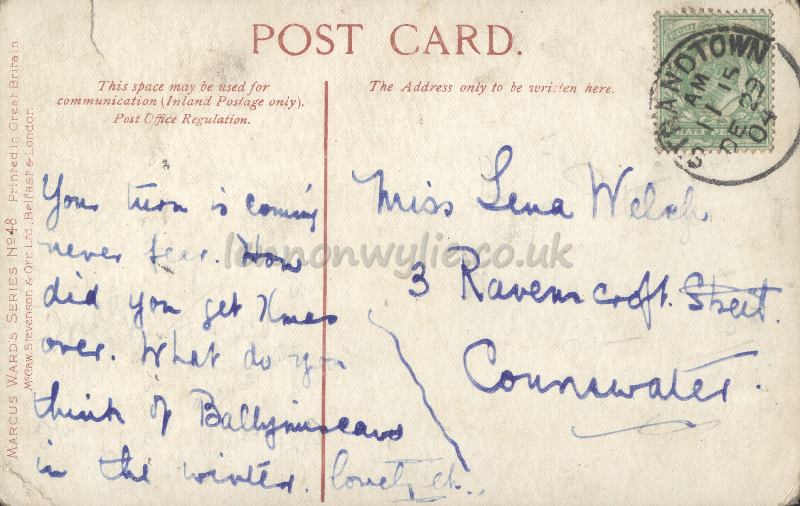 POST CARD.
This space may be used for
communication (Inland Postage only).
Post Office Regulation.
The Address only to be written here.
MARCUS WARDS SERIES Nº 48 Printed in Great Britain
McCaw, Stevenson & Orr Ltd, Belfast & London.
STRANDTOWN
1 15
AM
DE 23
04
HALF PENNY
Your turn is coming
never fear. How
did you get Xmas
over. What do you
think of
in the winter. lovely eh..
Miss Lena Welch
3 Ravenscroft Street.
Connswater.
lennonwylie.co.uk